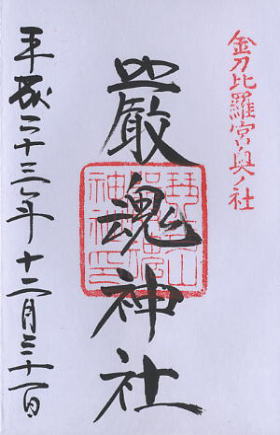 金刀比羅宮奥ノ社
厳魂神社
平成二十三年十二月三十一日